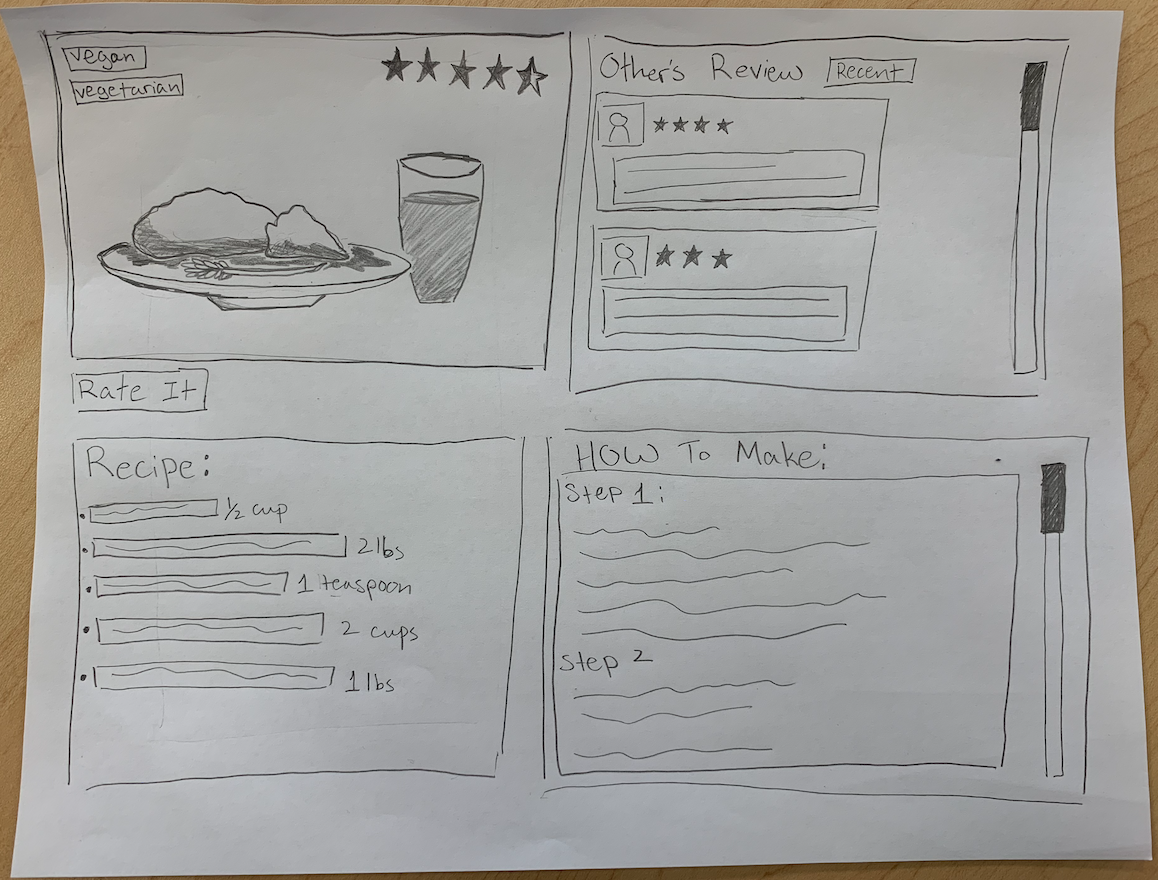 vegan
vegetarian
Rate It
Other's Review
Recent
Recipe:
½ cup
2 lbs
1 teaspoon
2 cups
1 lbs
HOW To Make:
Step 1:
Step 2